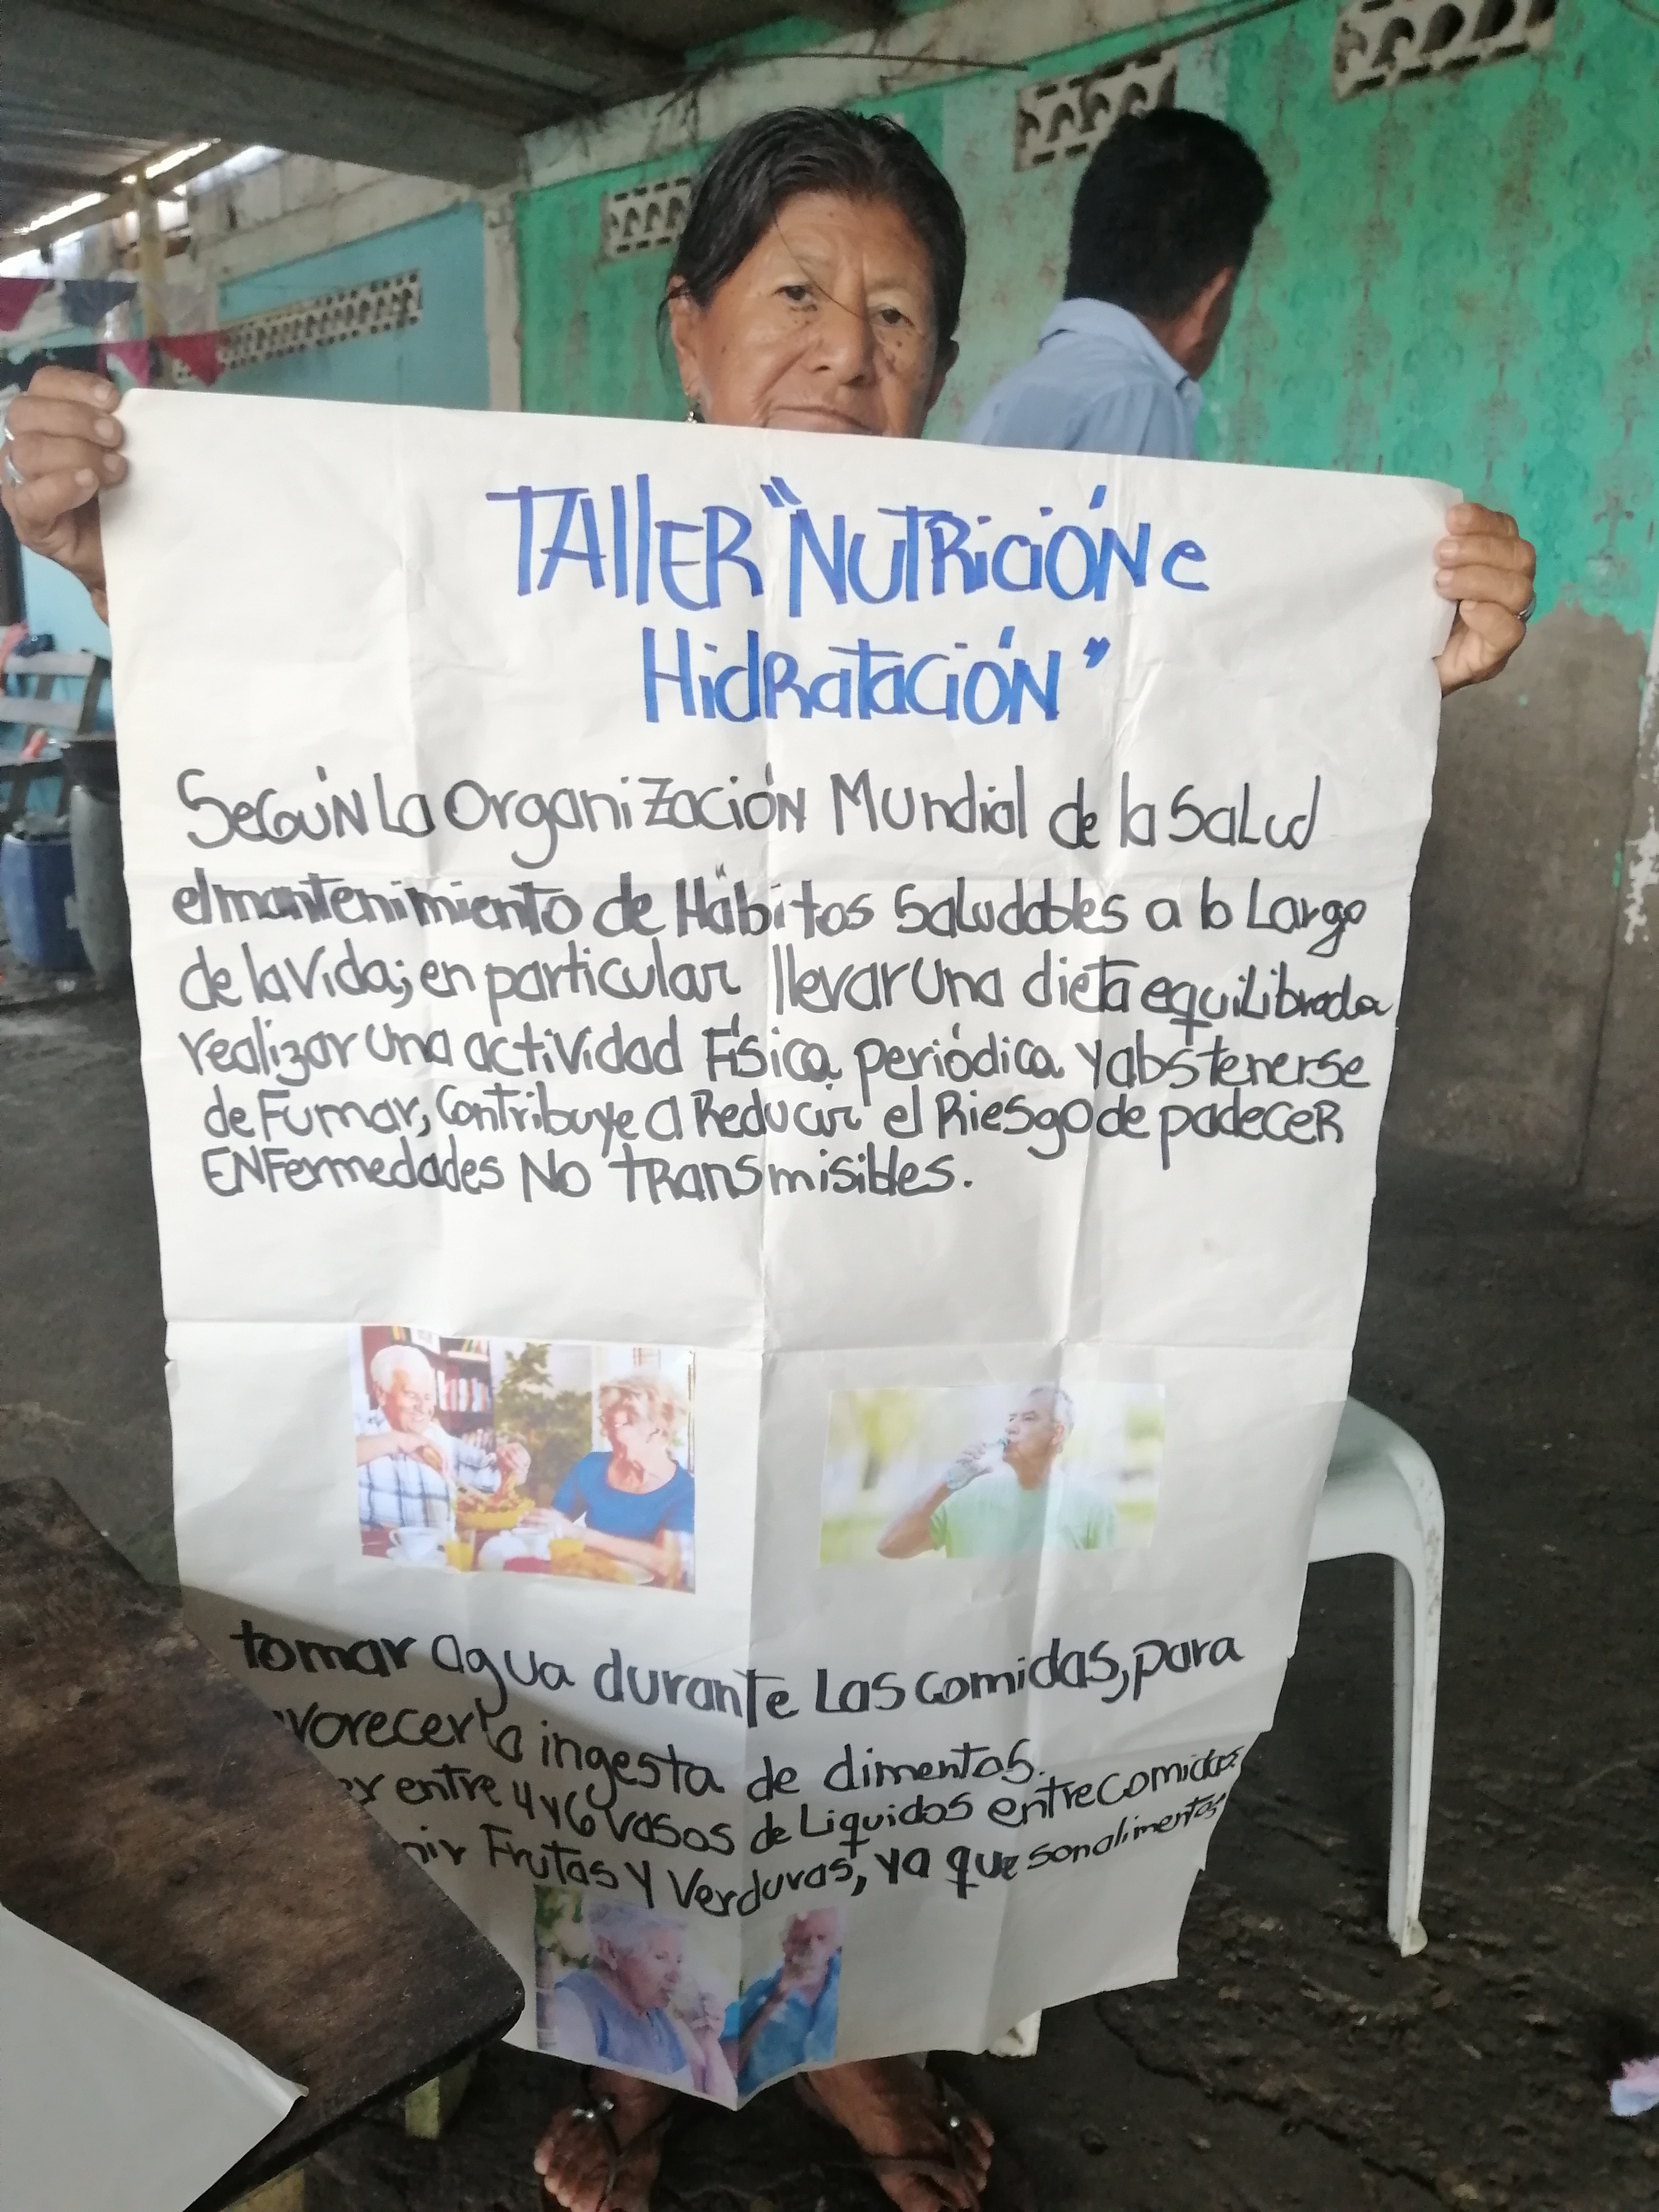 TALLER "NUTRICIÓN e
HidRatacióN"
SEGÚN La Organización Mundial de la Salud
el mantenimiento de Hábitos Saludables a lo Largo
de la Vida; en particular llevar Una dieta equilibrada
realizar una actividad Física periódica y abstenerse
de Fumar, Contribuye a Reducir el Riesgo de padecer
ENFermedades No TRansmisibles.
tomar agua durante Las comidas, para
vorecer la ingesta de alimentos.
er entre 4 y 6 vasos de Liquidos entre Comidas
nir Frutas y Verduras, ya que son alimentos